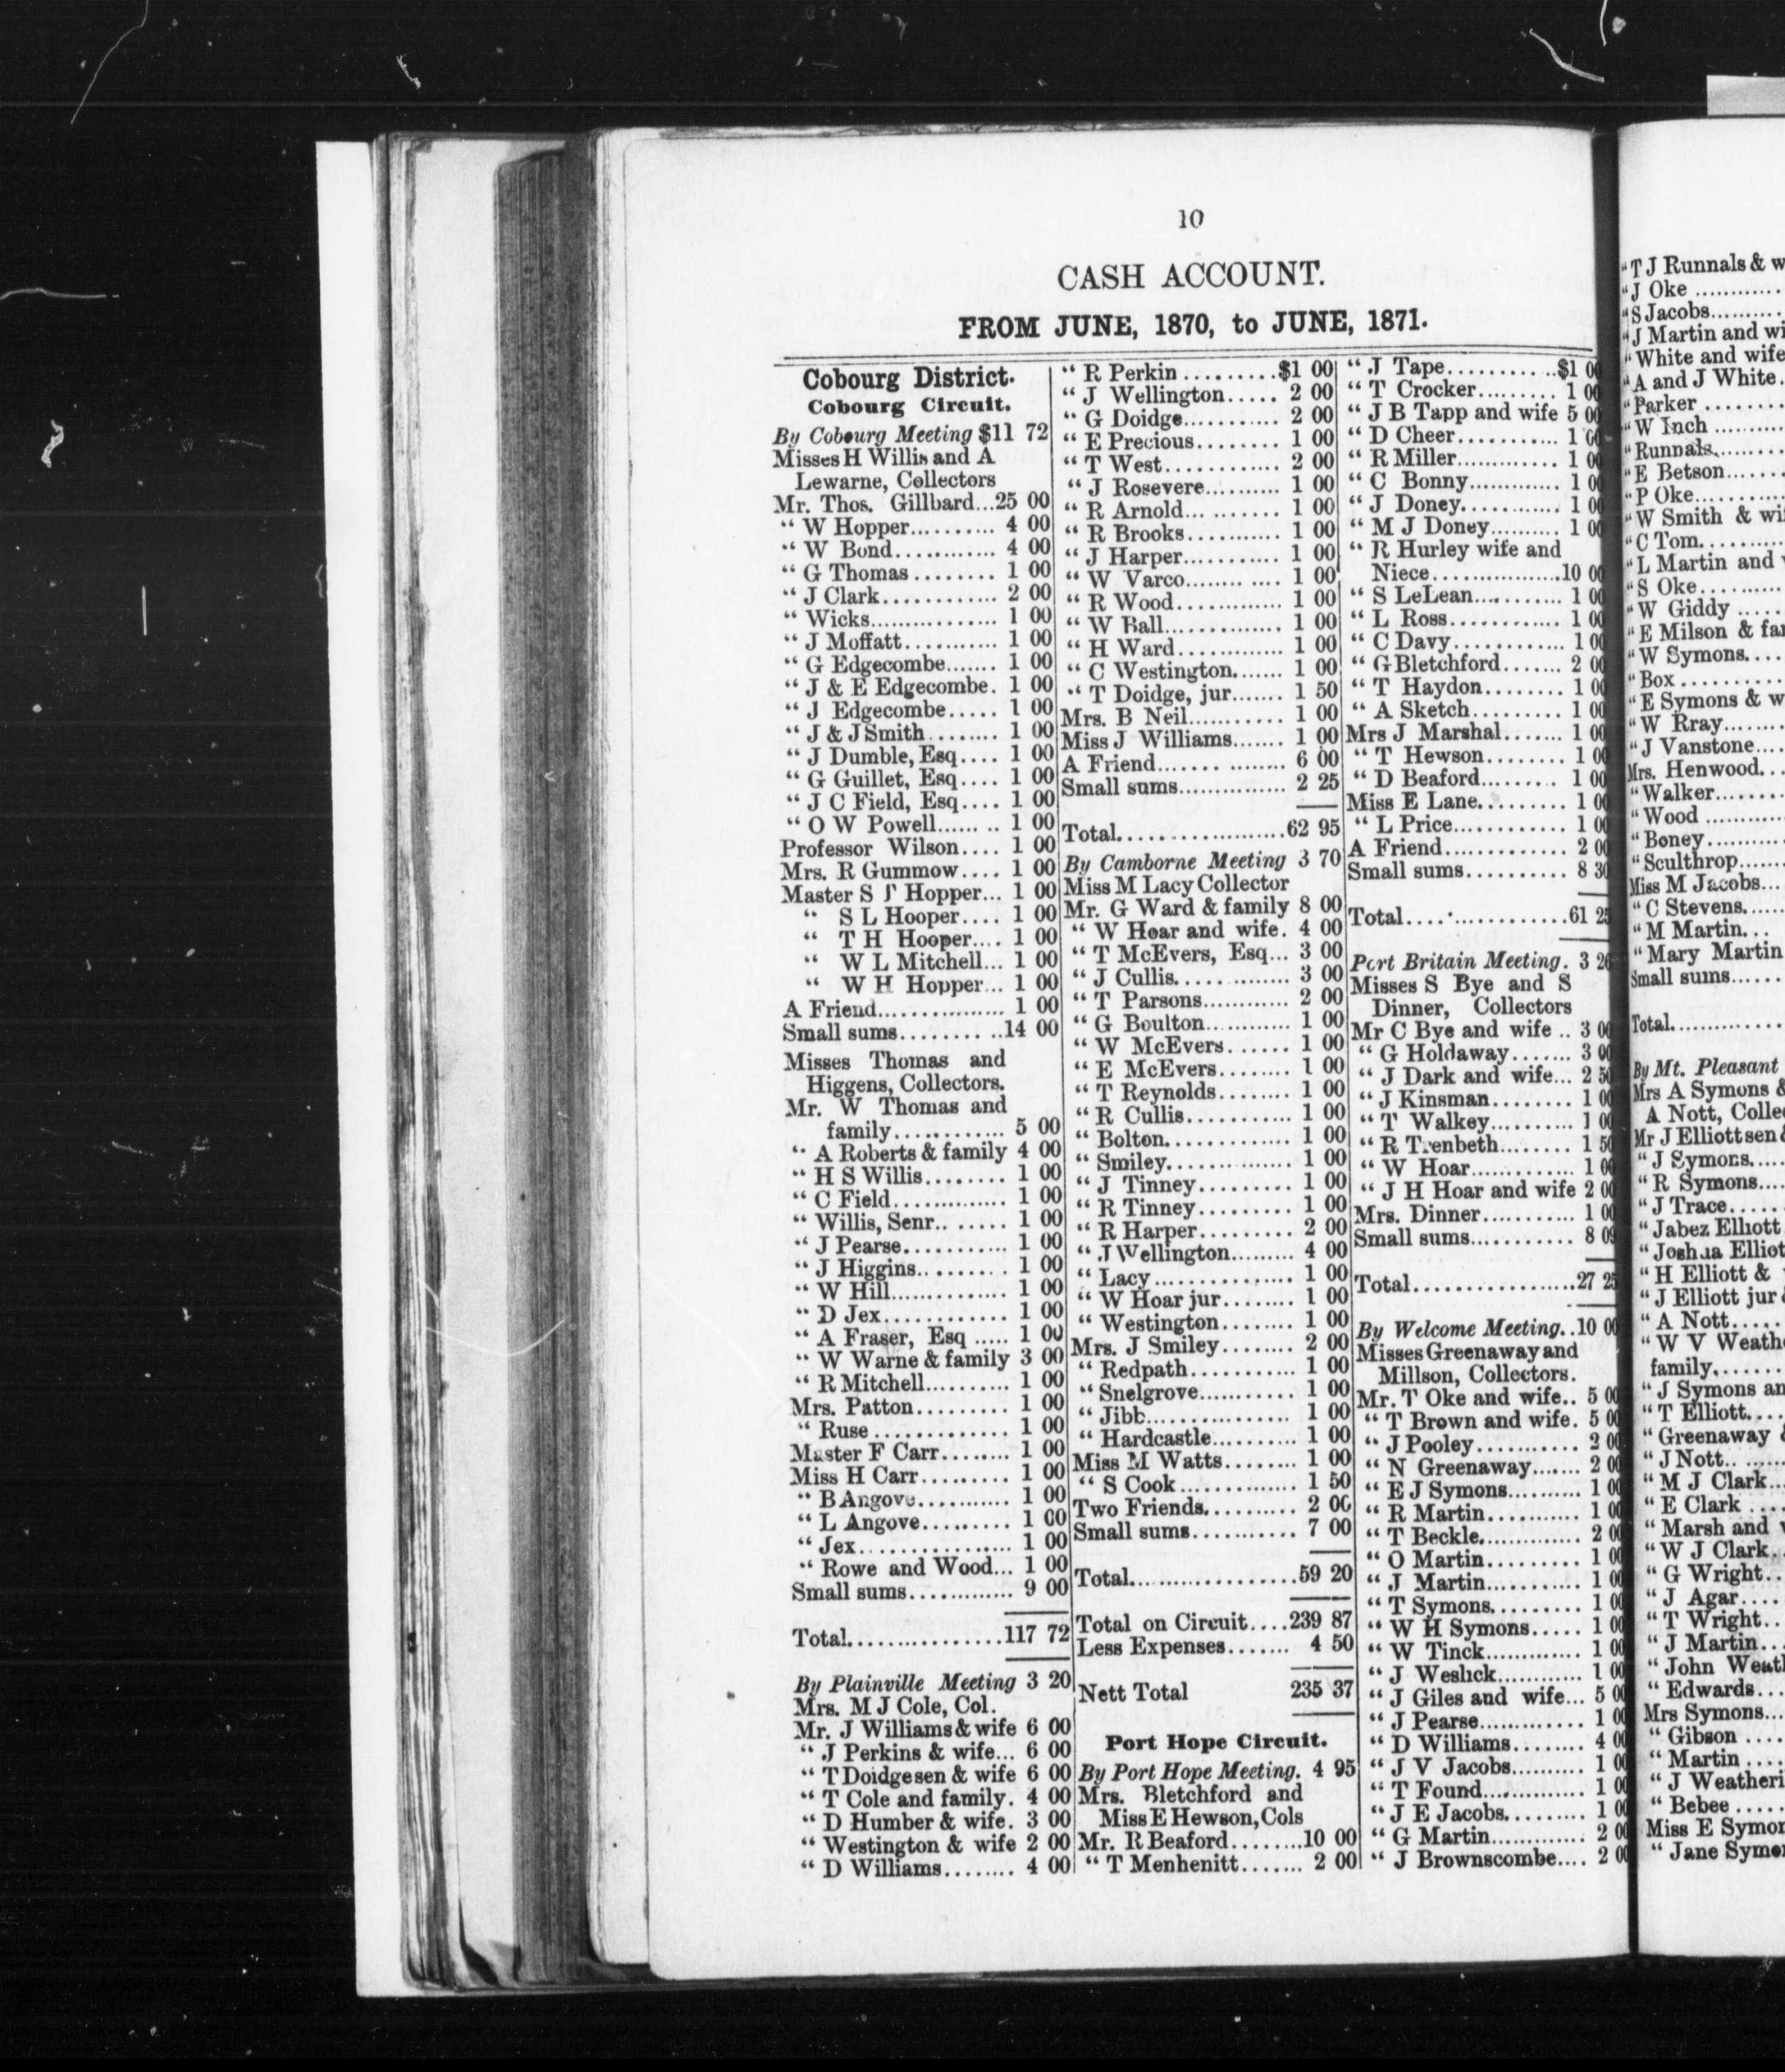 10
CASH ACCOUNT.
FROM JUNE, 1870, to JUNE, 1871.
Cobourg District.
Cobourg Circuit.
By Cobourg Meeting $11 72
Misses H Willis and A
Lewarne, Collectors
Mr. Thos. Gillbard...25 00
“ W Hopper.......... 4 00
“ W Bond............ 4 00
“ G Thomas........ 1 00
“ J Clark............ 2 00
“ Wicks................ 1 00
“ J Moffatt........... 1 00
“ G Edgecombe....... 1 00
“ J & E Edgecombe. 1 00
“ J Edgecombe..... 1 00
“ J & J Smith........ 1 00
“ J Dumble, Esq.... 1 00
“ G Guillet, Esq.... 1 00
“ J C Field, Esq.... 1 00
“ O W Powell........ 1 00
Professor Wilson.... 1 00
Mrs. R Gummow.... 1 00
Master S J Hopper... 1 00
“ S L Hooper.... 1 00
“ T H Hooper.... 1 00
“ W L Mitchell... 1 00
“ W H Hopper... 1 00
A Friend................ 1 00
Small sums...........14 00
Misses Thomas and
Higgens, Collectors.
Mr. W Thomas and
family............ 5 00
“ A Roberts & family 4 00
“ H S Willis........ 1 00
“ C Field............ 1 00
“ Willis, Senr........ 1 00
“ J Pearse........... 1 00
“ J Higgins.......... 1 00
“ W Hill.............. 1 00
“ D Jex............. 1 00
“ A Fraser, Esq ..... 1 00
“ W Warne & family 3 00
“ R Mitchell.......... 1 00
Mrs. Patton.......... 1 00
“ Ruse ............. 1 00
Master F Carr......... 1 00
Miss H Carr......... 1 00
“ B Angove........... 1 00
“ L Angove......... 1 00
“ Jex................ 1 00
“ Rowe and Wood... 1 00
Small sums............ 9 00
Total..................117 72
By Plainville Meeting 3 20
Mrs. M J Cole, Col.
Mr. J Williams & wife 6 00
“ J Perkins & wife... 6 00
“ T Doidge sen & wife 6 00
“ T Cole and family. 4 00
“ D Humber & wife. 3 00
“ Westington & wife 2 00
“ D Williams........ 4 00
“ R Perkin.........$1 00
“ J Wellington..... 2 00
“ G Doidge........... 2 00
“ E Precious........ 1 00
“ T West............ 2 00
“ J Rosevere.......... 1 00
“ R Arnold........... 1 00
“ R Brooks............ 1 00
“ J Harper............ 1 00
“ W Varco............ 1 00
“ R Wood............. 1 00
“ W Ball.............. 1 00
“ H Ward............. 1 00
“ C Westington....... 1 00
“ T Doidge, jur....... 1 50
Mrs. B Neil........... 1 00
Miss J Williams....... 1 00
A Friend............... 6 00
Small sums.............. 2 25
Total...................62 95
By Camborne Meeting 3 70
Miss M Lacy Collector
Mr. G Ward & family 8 00
“ W Hoar and wife. 4 00
“ T McEvers, Esq... 3 00
“ J Cullis............. 3 00
“ T Parsons........... 2 00
“ G Boulton........... 1 00
“ W McEvers...... 1 00
“ E McEvers........ 1 00
“ T Reynolds........ 1 00
“ R Cullis............ 1 00
“ Bolton.............. 1 00
“ Smiley.............. 1 00
“ J Tinney......... 1 00
“ R Tinney......... 1 00
“ R Harper......... 2 00
“ J Wellington......... 4 00
“ Lacy................ 1 00
“ W Hoar jur......... 1 00
“ Westington......... 1 00
Mrs. J Smiley........ 2 00
“ Redpath........... 1 00
“ Snelgrove........... 1 00
“ Jibb................ 1 00
“ Hardcastle.......... 1 00
Miss M Watts........ 1 00
“ S Cook.............. 1 50
Two Friends.......... 2 00
Small sums............ 7 00
Total...................59 20
Total on Circuit....239 87
Less Expenses....... 4 50
Nett Total 235 37
Port Hope Circuit.
By Port Hope Meeting. 4 95
Mrs. Bletchford and
Miss E Hewson, Cols
Mr. R Beaford.......10 00
“ T Menhenitt....... 2 00
“ J Tape............$1 00
“ T Crocker......... 1 00
“ J B Tapp and wife 5 00
“ D Cheer........... 1 00
“ R Miller............. 1 00
“ C Bonny............ 1 00
“ J Doney............ 1 00
“ M J Doney.......... 1 00
“ R Hurley wife and
Niece................10 00
“ S LeLean........... 1 00
“ L Ross............ 1 00
“ C Davy............ 1 00
“ G Bletchford....... 2 00
“ T Haydon........ 1 00
“ A Sketch......... 1 00
Mrs J Marshal....... 1 00
“ T Hewson........ 1 00
“ D Beaford........ 1 00
Miss E Lane......... 1 00
“ L Price............ 1 00
A Friend............. 2 00
Small sums.......... 8 30
Total.................61 25
Port Britain Meeting. 3 26
Misses S Bye and S
Dinner, Collectors
Mr C Bye and wife .. 3 00
“ G Holdaway....... 3 00
“ J Dark and wife... 2 50
“ J Kinsman........ 1 00
“ T Walkey.......... 1 00
“ R Trenbeth........ 1 50
“ W Hoar............ 1 00
“ J H Hoar and wife 2 00
Mrs. Dinner........... 1 00
Small sums........... 8 09
Total..................27 25
By Welcome Meeting..10 00
Misses Greenaway and
Millson, Collectors.
Mr. T Oke and wife.. 5 00
“ T Brown and wife. 5 00
“ J Pooley........... 2 00
“ N Greenaway....... 2 00
“ E J Symons......... 1 00
“ R Martin........... 1 00
“ T Beckle............ 2 00
“ O Martin.......... 1 00
“ J Martin........... 1 00
“ T Symons.......... 1 00
“ W H Symons..... 1 00
“ W Tinck............. 1 00
“ J Weslick........... 1 00
“ J Giles and wife... 5 00
“ J Pearse............. 1 00
“ D Williams........ 4 00
“ J V Jacobs.......... 1 00
“ T Found............. 1 00
“ J E Jacobs......... 1 00
“ G Martin............ 2 00
“ J Brownscombe.... 2 00
“ T J Runnals & w
“ J Oke ............
“ S Jacobs..........
“ J Martin and wi
“ White and wife
“ A and J White.
“ Parker ........
“ W Inch .........
“ Runnals.........
“ E Betson......
“ P Oke..........
“ W Smith & wi
“ C Tom.........
“ L Martin and
“ S Oke.........
“ W Giddy .....
“ E Milson & fa
“ W Symons....
“ Box ..........
“ E Symons & w
“ W Rray.......
“ J Vanstone....
Mrs. Henwood...
“ Walker.......
“ Wood .........
“ Boney.........
“ Sculthrop.....
Miss M Jacobs...
“ C Stevens.....
“ M Martin...
“ Mary Martin
Small sums......
Total.............
By Mt. Pleasant
Mrs A Symons &
A Nott, Colle
Mr J Elliott sen &
“ J Symons.....
“ R Symons....
“ J Trace......
“ Jabez Elliott
“ Joshua Elliot
“ H Elliott &
“ J Elliott jur &
“ A Nott.....
“ W V Weath
family.......
“ J Symons an
“ T Elliott....
“ Greenaway &
“ J Nott.. .....
“ M J Clark...
“ E Clark ....
“ Marsh and
“ W J Clark..
“ G Wright..
“ J Agar....
“ T Wright..
“ J Martin...
“ John Weath
“ Edwards...
Mrs Symons...
“ Gibson ....
“ Martin ....
“ J Weatheri
“ Bebee .....
Miss E Symon
“ Jane Symo